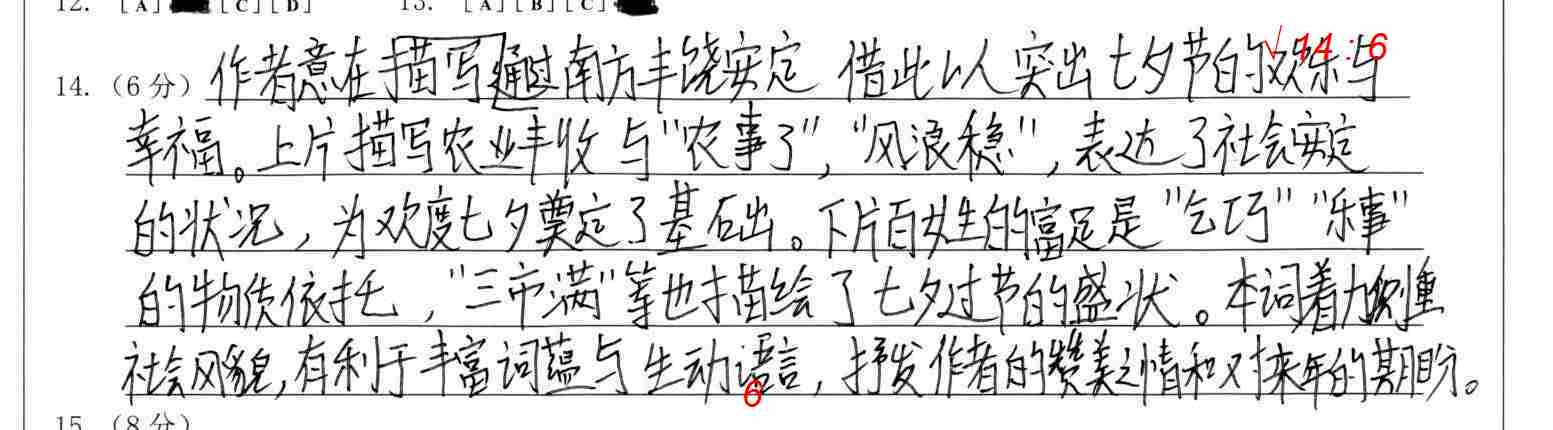 12. [A] [C] [D] 13. [A] [B] [C]
√ 14：6
14.（6分）作者意在描写通过南方丰饶安定 借此以人突出七夕节的欢乐与
幸福。上片描写农业丰收与"农事了"，"风浪稳"，表达了社会安定
的状况，为欢度七夕奠定了基石出。下片百姓的富足是"乞巧""乐事"
的物质依托，"三市满"等也描绘了七夕过节的盛状。本词着力侧重
社会风貌，有利于丰富词蕴与生动语言，抒发作者的赞美之情和对来年的期盼。
6
15.（8分）